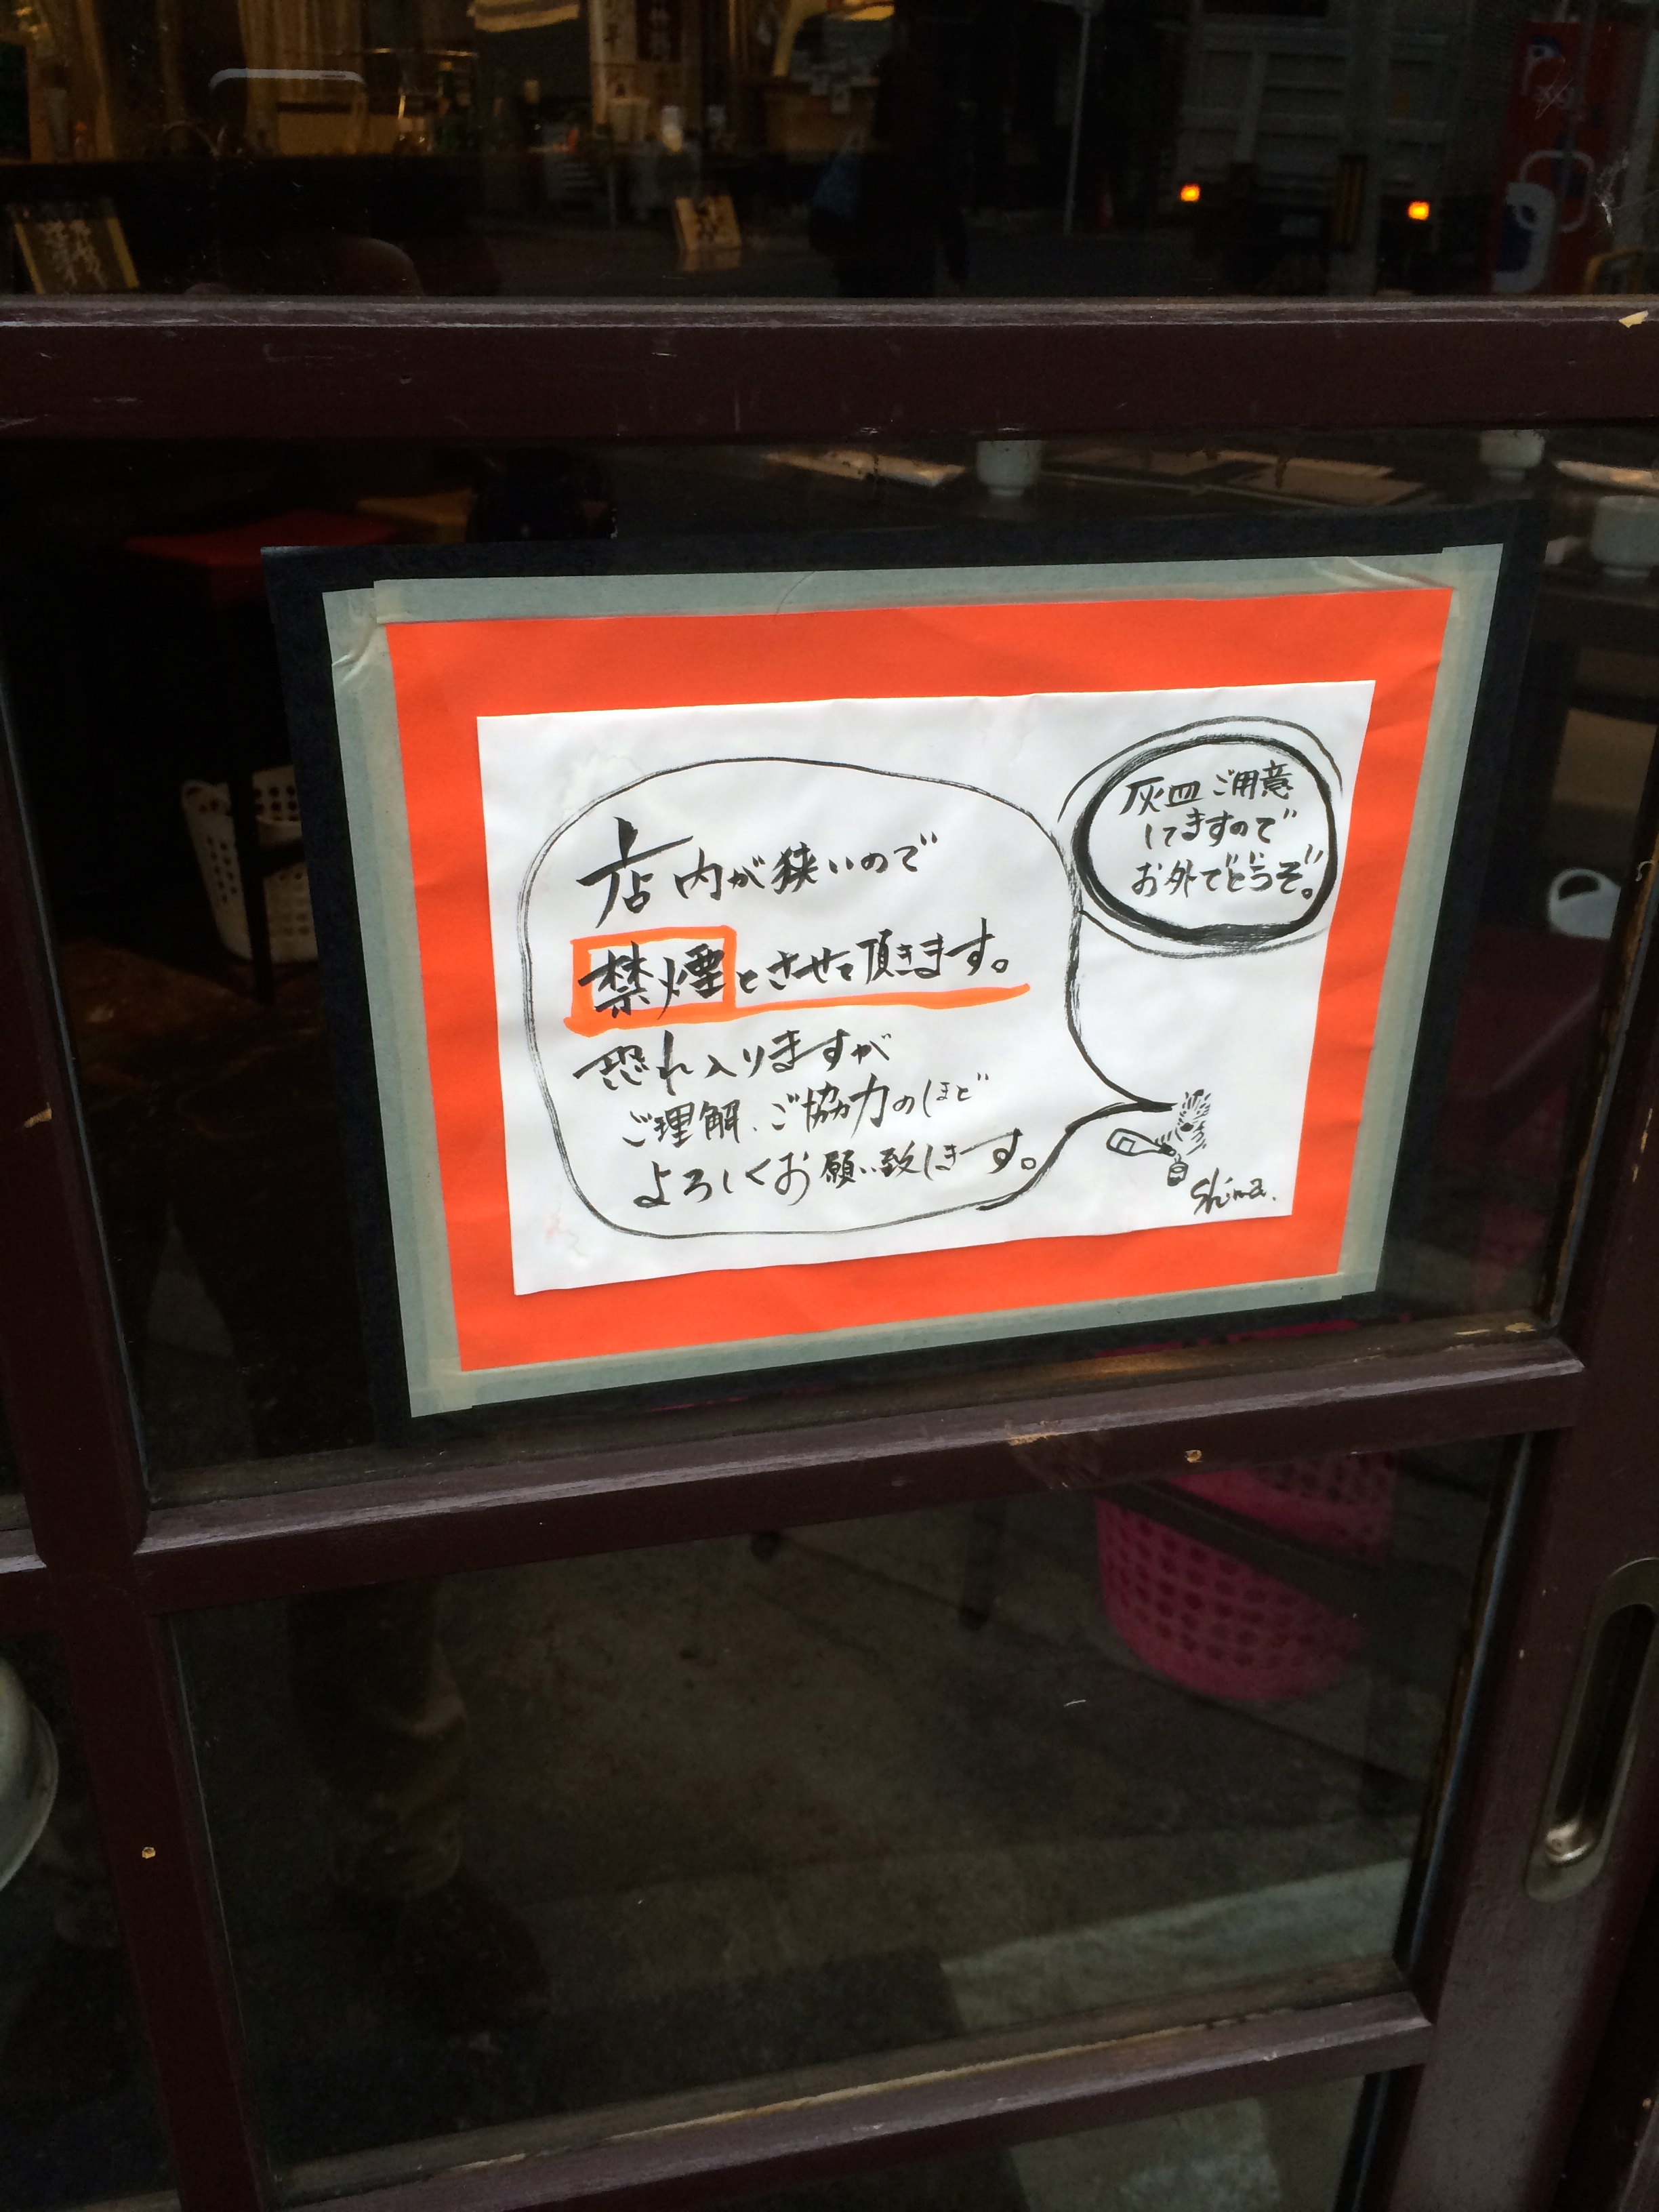 店内が狭いので
禁煙とさせて頂きます。
恐れ入りますが
ご理解、ご協力のほど
よろしくお願い致します。
灰皿ご用意
してますので
お外でどうぞ。
Shima.